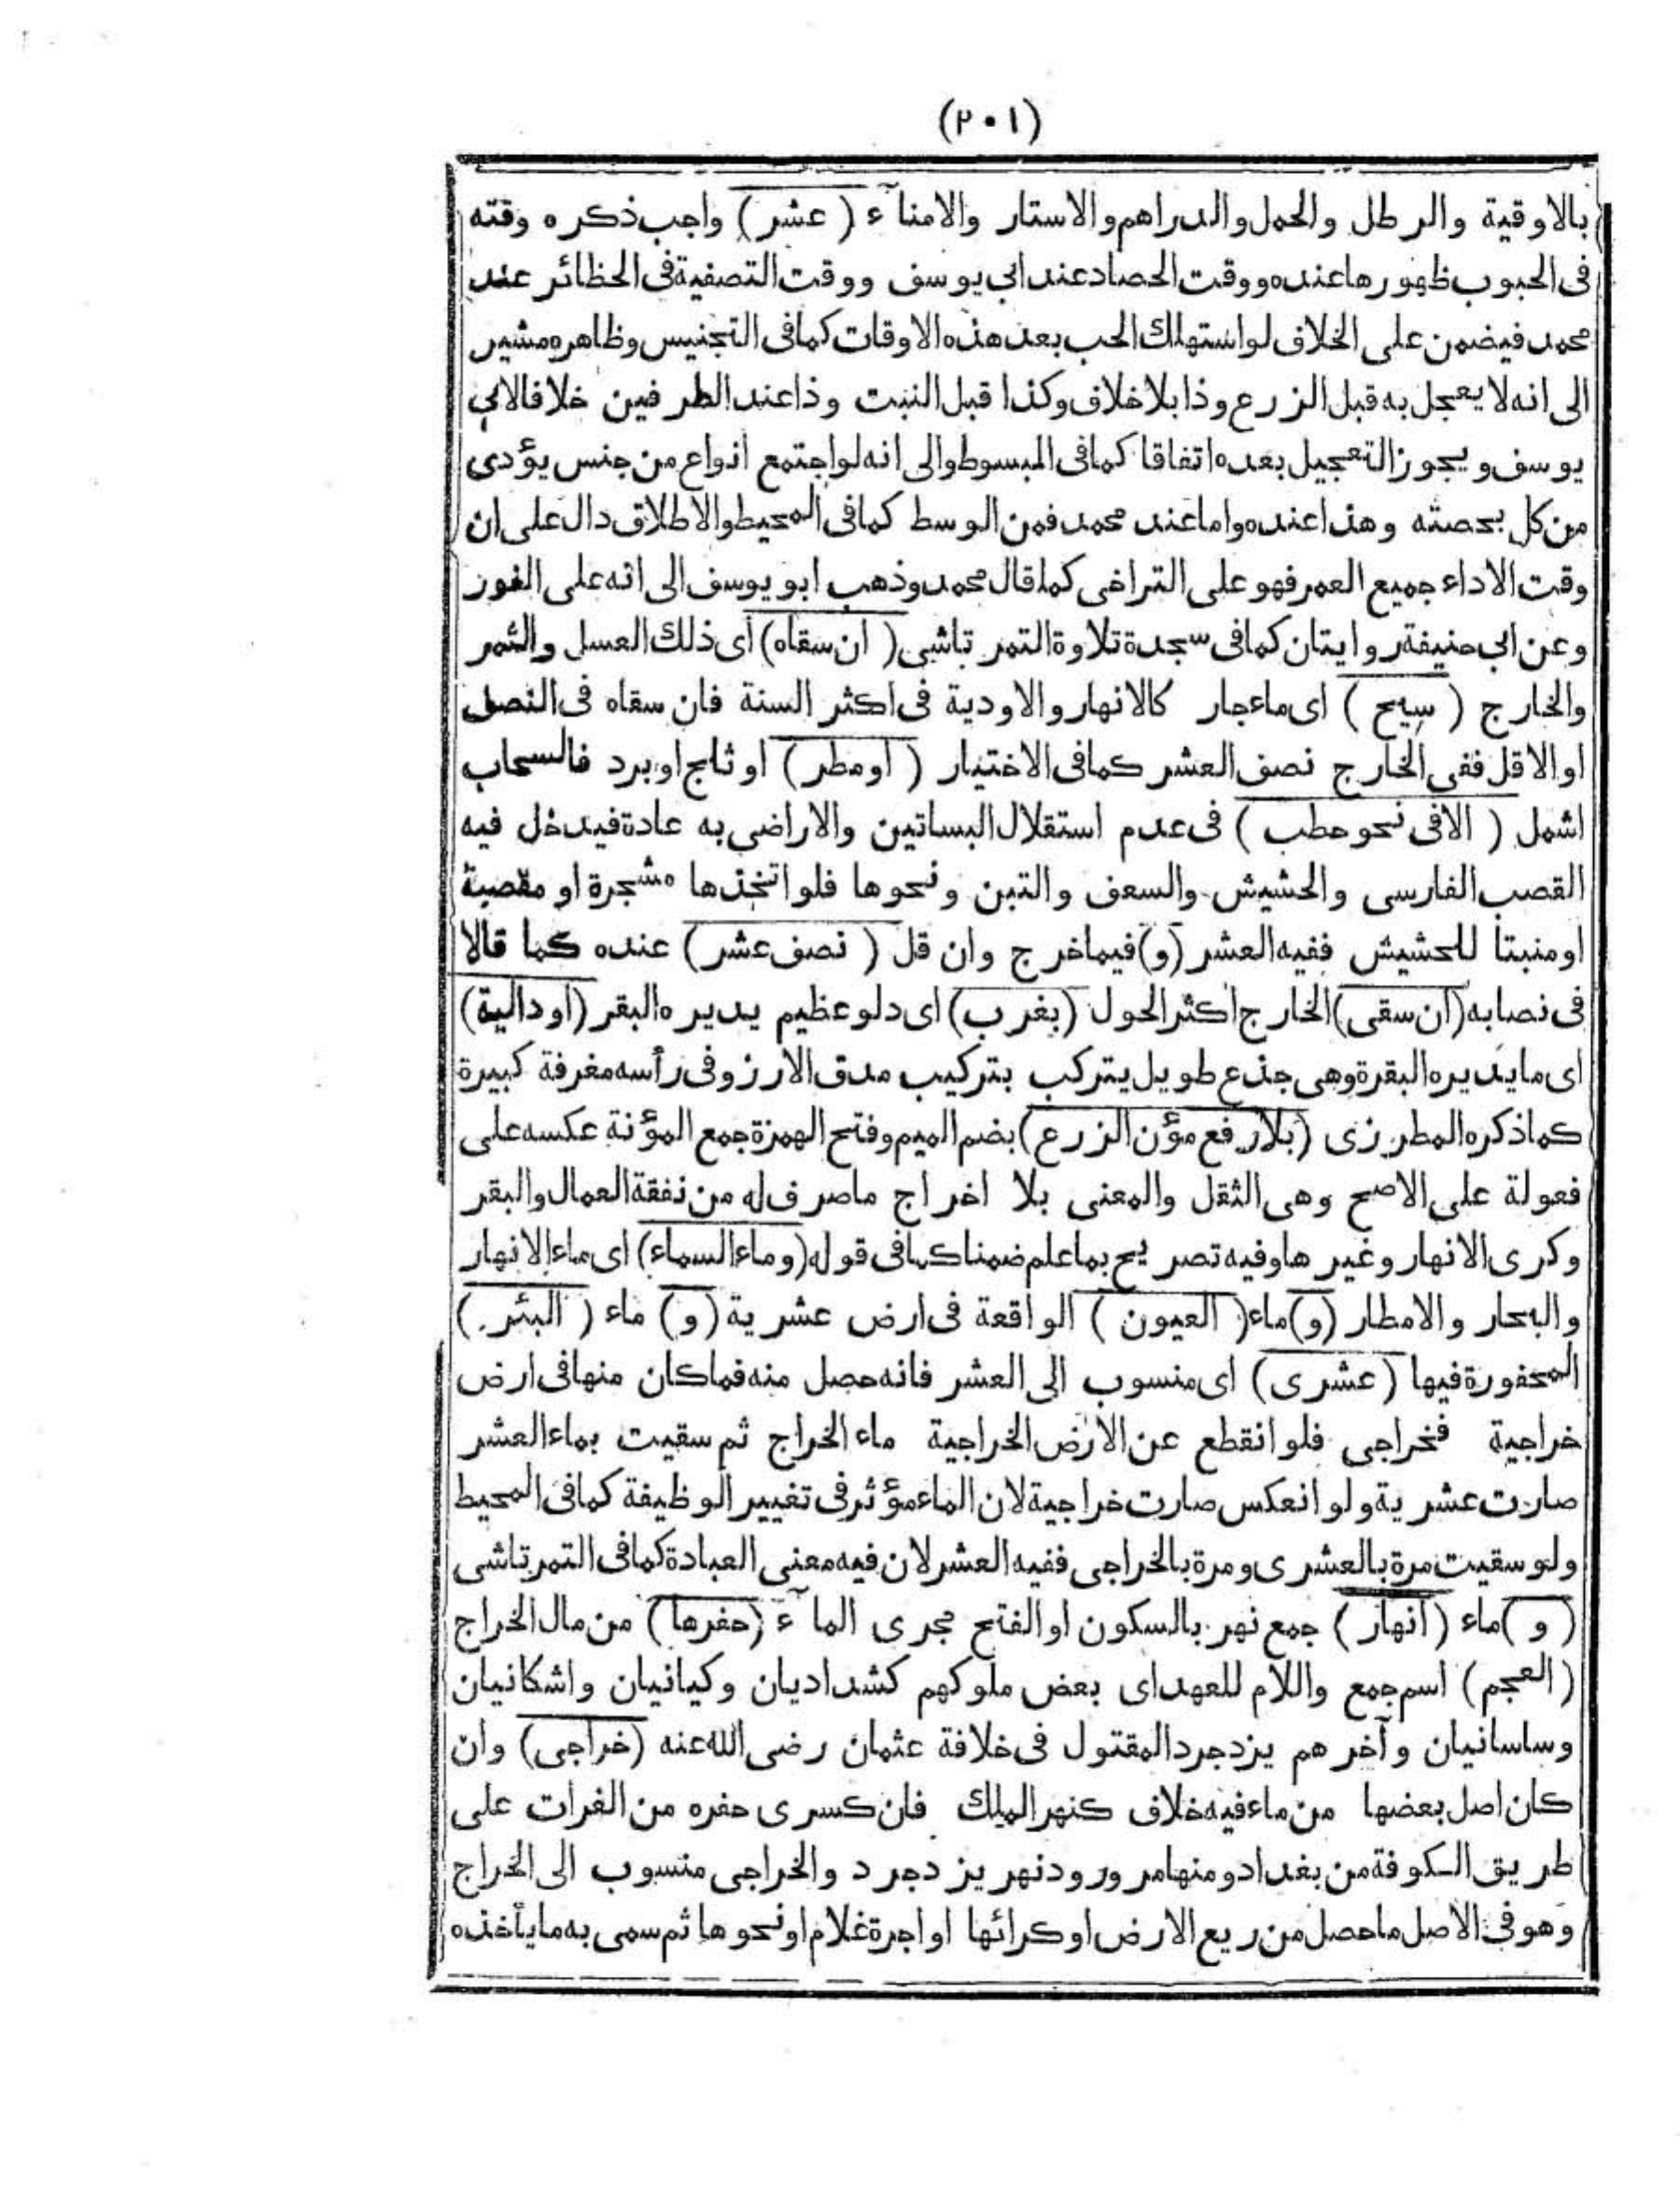 (٢٠١)
بالاوقية والرطل والحمل والدراهم والاستار والامناء (عشر) واجب ذكره وقته
فى الحبوب ظهورها عنده ووقت الحصاد عند ابى يوسف ووقت التصفية فى الحظائر عند
محمد فيضمن على الخلاف لو استهلك الحب بعد هذه الاوقات كما فى التجنيس وظاهره مشير
الى انه لا يعجل به قبل الزرع وذا بلا خلاف وكذا قبل النبت وذا عند الطرفين خلافا لابى
يوسف ويجوز التعجيل بعده اتفاقا كما فى المبسوط والى انه لو اجتمع انواع من جنس يؤدى
من كل بحصته وهذا عنده واما عند محمد فمن الوسط كما فى المحيط والاطلاق دال على ان
وقت الاداء جميع العمر فهو على التراخى كما قال محمد وذهب ابو يوسف الى انه على الفور
وعن ابى حنيفة روايتان كما فى سجدة تلاوة التمرتاشى (ان سقاه) اى ذلك العسل والثمر
والخارج (سيح) اى ماء جار كالانهار والاودية فى اكثر السنة فان سقاه فى النصف
او الاقل ففى الخارج نصف العشر كما فى الاختيار (او مطر) او ثلج او برد فالسحاب
اشمل (الا فى نحو حطب) فى عدم استقلال البساتين والاراضى به عادة فيدخل فيه
القصب الفارسى والحشيش والسعف والتبن ونحوها فلو اتخذها مشجرة او مقصبة
او منبتا للحشيش ففيه العشر (و) فيما خرج وان قل (نصف عشر) عنده كما قالا
فى نصابه (ان سقى) الخارج اكثر الحول (بغرب) اى دلو عظيم يديره البقر (او دالية)
اى ما يديره البقرة وهى جذع طويل يتركب بتركيب مدق الارز وفى رأسه مغرفة كبيرة
كما ذكره المطرزى (بلا رفع مؤن الزرع) بضم الميم وفتح الهمزة جمع المؤنة عكسه على
فعولة على الاصح وهى الثقل والمعنى بلا اخراج ما صرف له من نفقة العمال والبقر
وكرى الانهار وغيرها وفيه تصريح بما علم ضمنا كما فى قوله (وماء السماء) اى ماء الانهار
والبحار والامطار (و) ماء (العيون) الواقعة فى ارض عشرية (و) ماء (البئر)
المحفورة فيها (عشرى) اى منسوب الى العشر فانه حصل منه فما كان منها فى ارض
خراجية فخراجى فلو انقطع عن الارض الخراجية ماء الخراج ثم سقيت بماء العشر
صارت عشرية ولو انعكس صارت خراجية لان الماء مؤثر فى تغيير الوظيفة كما فى المحيط
ولو سقيت مرة بالعشرى ومرة بالخراجى ففيه العشر لان فيه معنى العبادة كما فى التمرتاشى
(و) ماء (انهار) جمع نهر بالسكون او الفتح مجرى الماء (حفرها) من مال الخراج
(العجم) اسم جمع واللام للعهد اى بعض ملوكهم كشداديان وكيانيان واشكانيان
وساسانيان وآخرهم يزدجرد المقتول فى خلافة عثمان رضى الله عنه (خراجى) وان
كان اصل بعضها من ماء فيه خلاف كنهر الملك فان كسرى حفره من الفرات على
طريق الكوفة من بغداد ومنها مرورود نهر يزدجرد والخراجى منسوب الى الخراج
وهو فى الاصل ما حصل من ريع الارض او كرائها او اجرة غلام او نحوها ثم سمى به ما يأخذه